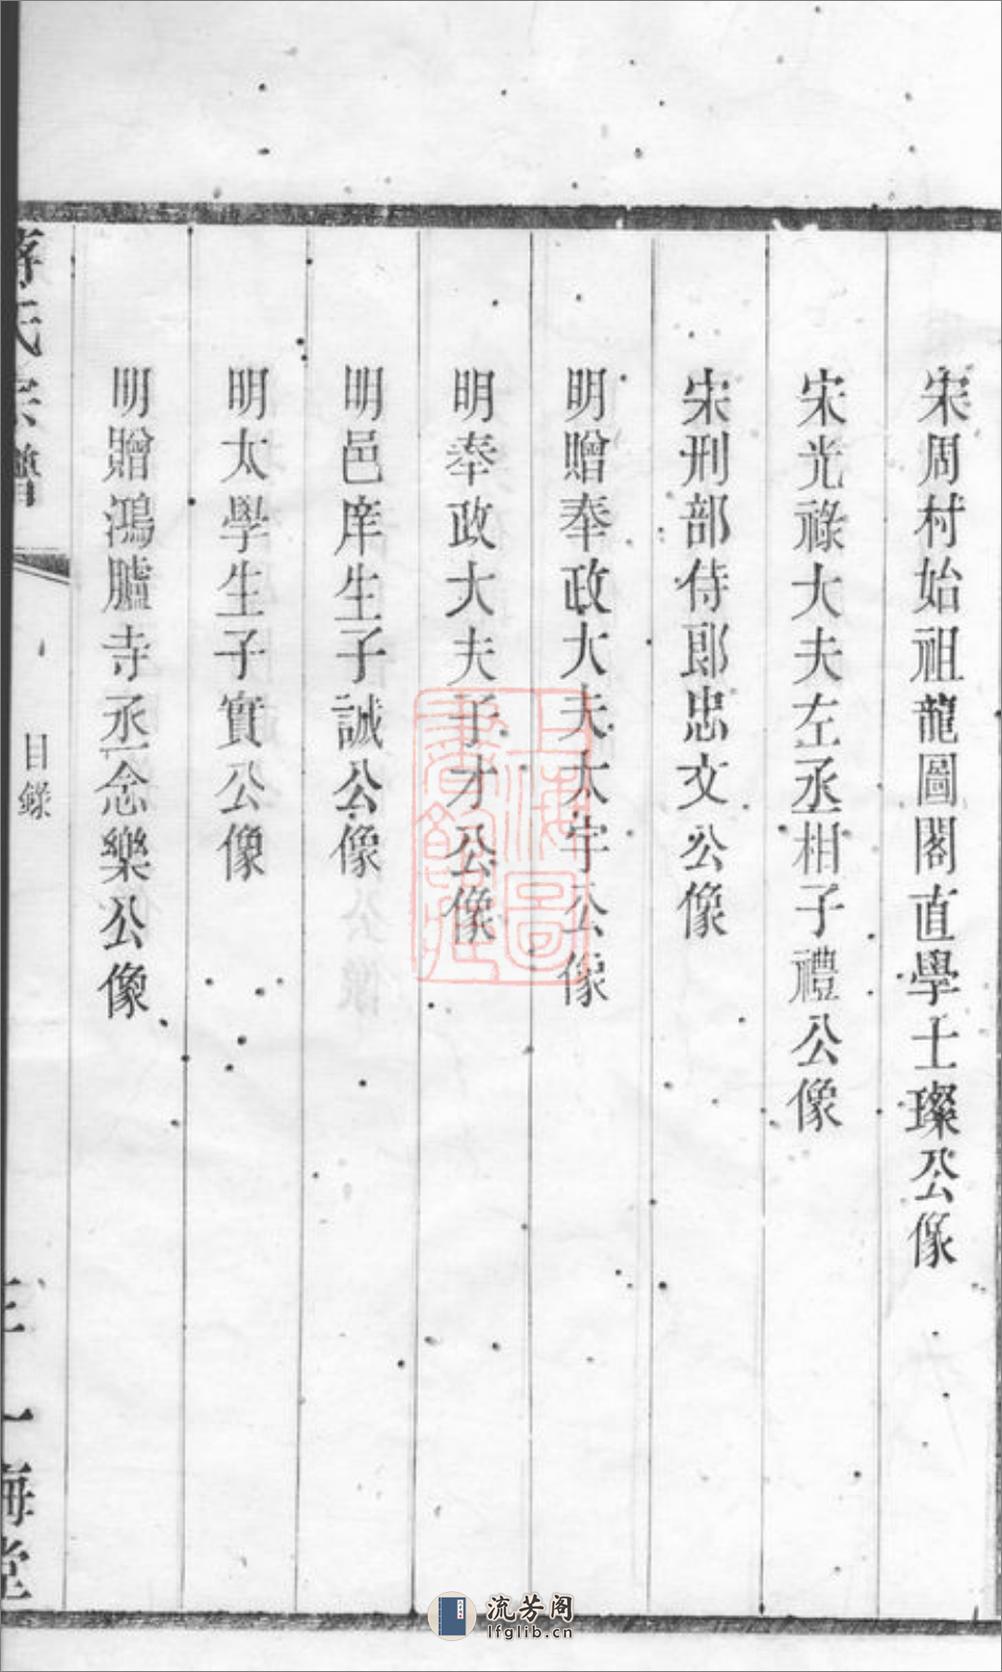 宋周村始祖龍圖閣直學士璨公像
宋光祿大夫左丞相子禮公像
宋刑部侍郎忠文公像
明贈奉政大夫太宇公像
明奉政大夫于才公像
明邑庠生子誠公像
明太學生子實公像
明贈鴻臚寺丞念樂公像
蔣氏宗譜
目錄
三一梅堂
上海圖書館藏
流芳阁
lfglib.cn